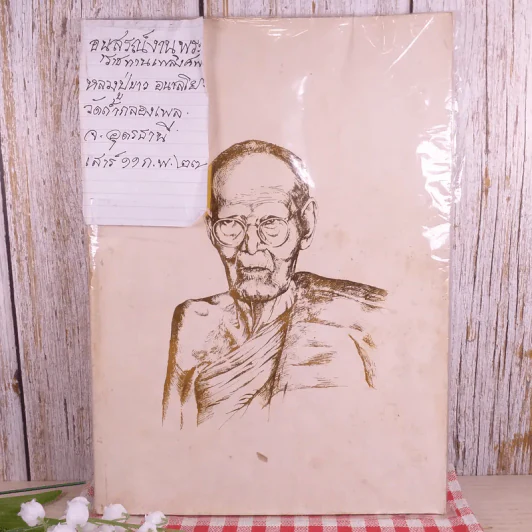 อนุสรณ์งานพระ
ราชทานเพลิงศพ
หลวงปู่ขาว อนาลโย
วัดถ้ำกลองเพล.
จ. อุดรธานี
เสาร์ ๑๑ ก.พ. ๒๗